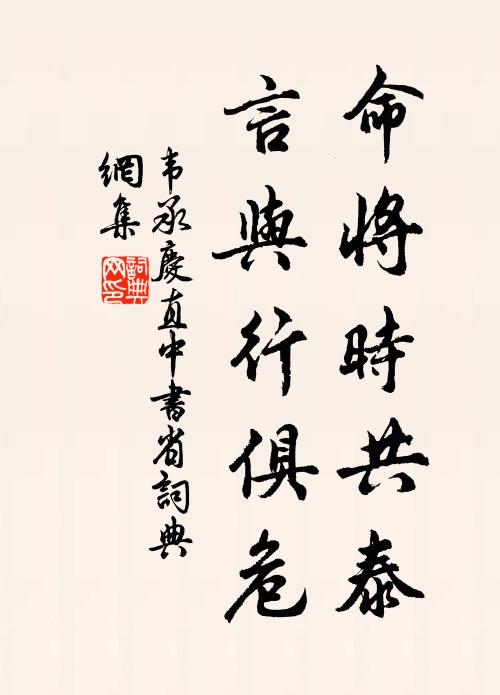 命將時共泰
言與行俱危
韦承慶直中書省詞典
網集
詞典網印